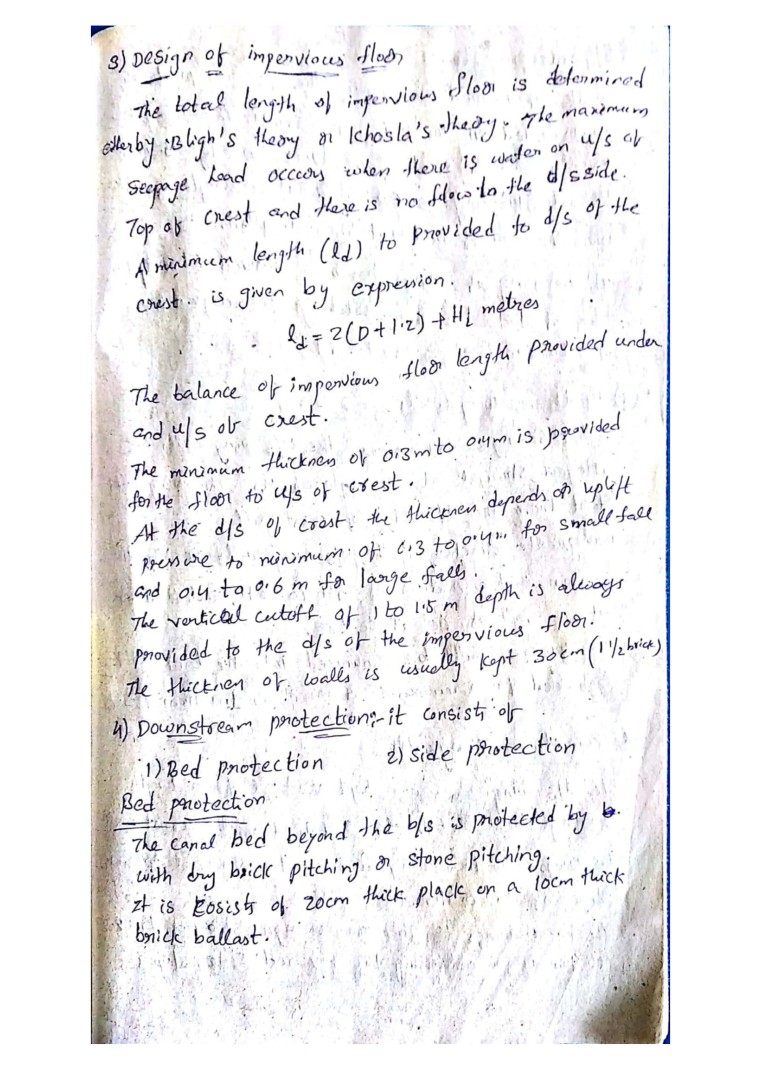 3) Design of impervious floor
The total length of impervious floor is determined
either by Bligh's theory or Khosla's theory. The maximum
Seepage head occurs when there is water on u/s of
Top of crest and there is no flow to the d/s side.
A minimum length (ld) to provided to d/s of the
crest is given by expression.
ld = 2(D+1.2) + HL metres
The balance of impervious floor length provided under
and u/s of crest.
The minimum thickness of 0.3m to 0.4m is provided
for the floor to u/s of crest.
At the d/s of crest the thickness depends on uplift
pressure to minimum of 0.3 to 0.4m for small fall
and 0.4 to 0.6 m for large falls.
The vertical cutoff of 1 to 1.5 m depth is always
provided to the d/s of the impervious floor.
The thickness of walls is usually kept 30cm (1 1/2 brick)
4) Downstream protection:- it consists of
1) Bed protection 2) side protection
Bed protection
The canal bed beyond the b/s is protected by
with dry brick pitching or stone pitching.
It is cosists of 20cm thick plack on a 10cm thick
brick ballast.